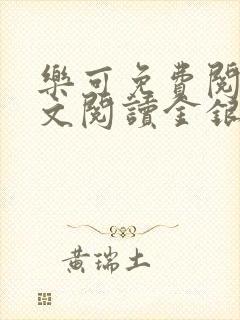 樂可免費閱
文閱讀金銀
黃瑞土